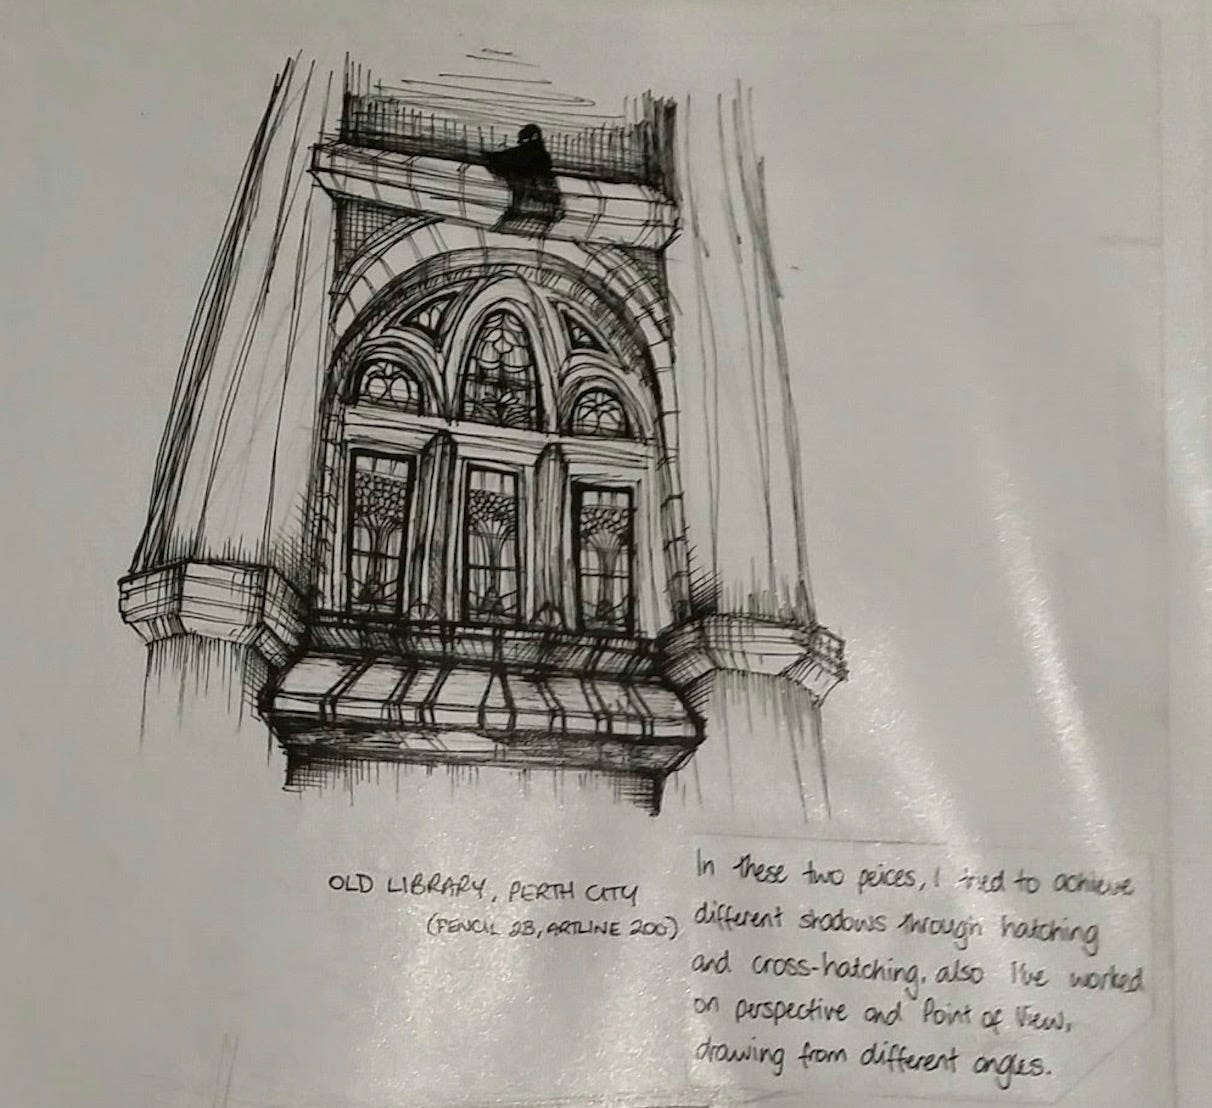 OLD LIBRARY, PERTH CITY
(PENCIL 2B, ARTLINE 200)
In these two peices, I tried to achieve
different shadows through hatching
and cross-hatching, also I've worked
on perspective and Point of View,
drawing from different angles.